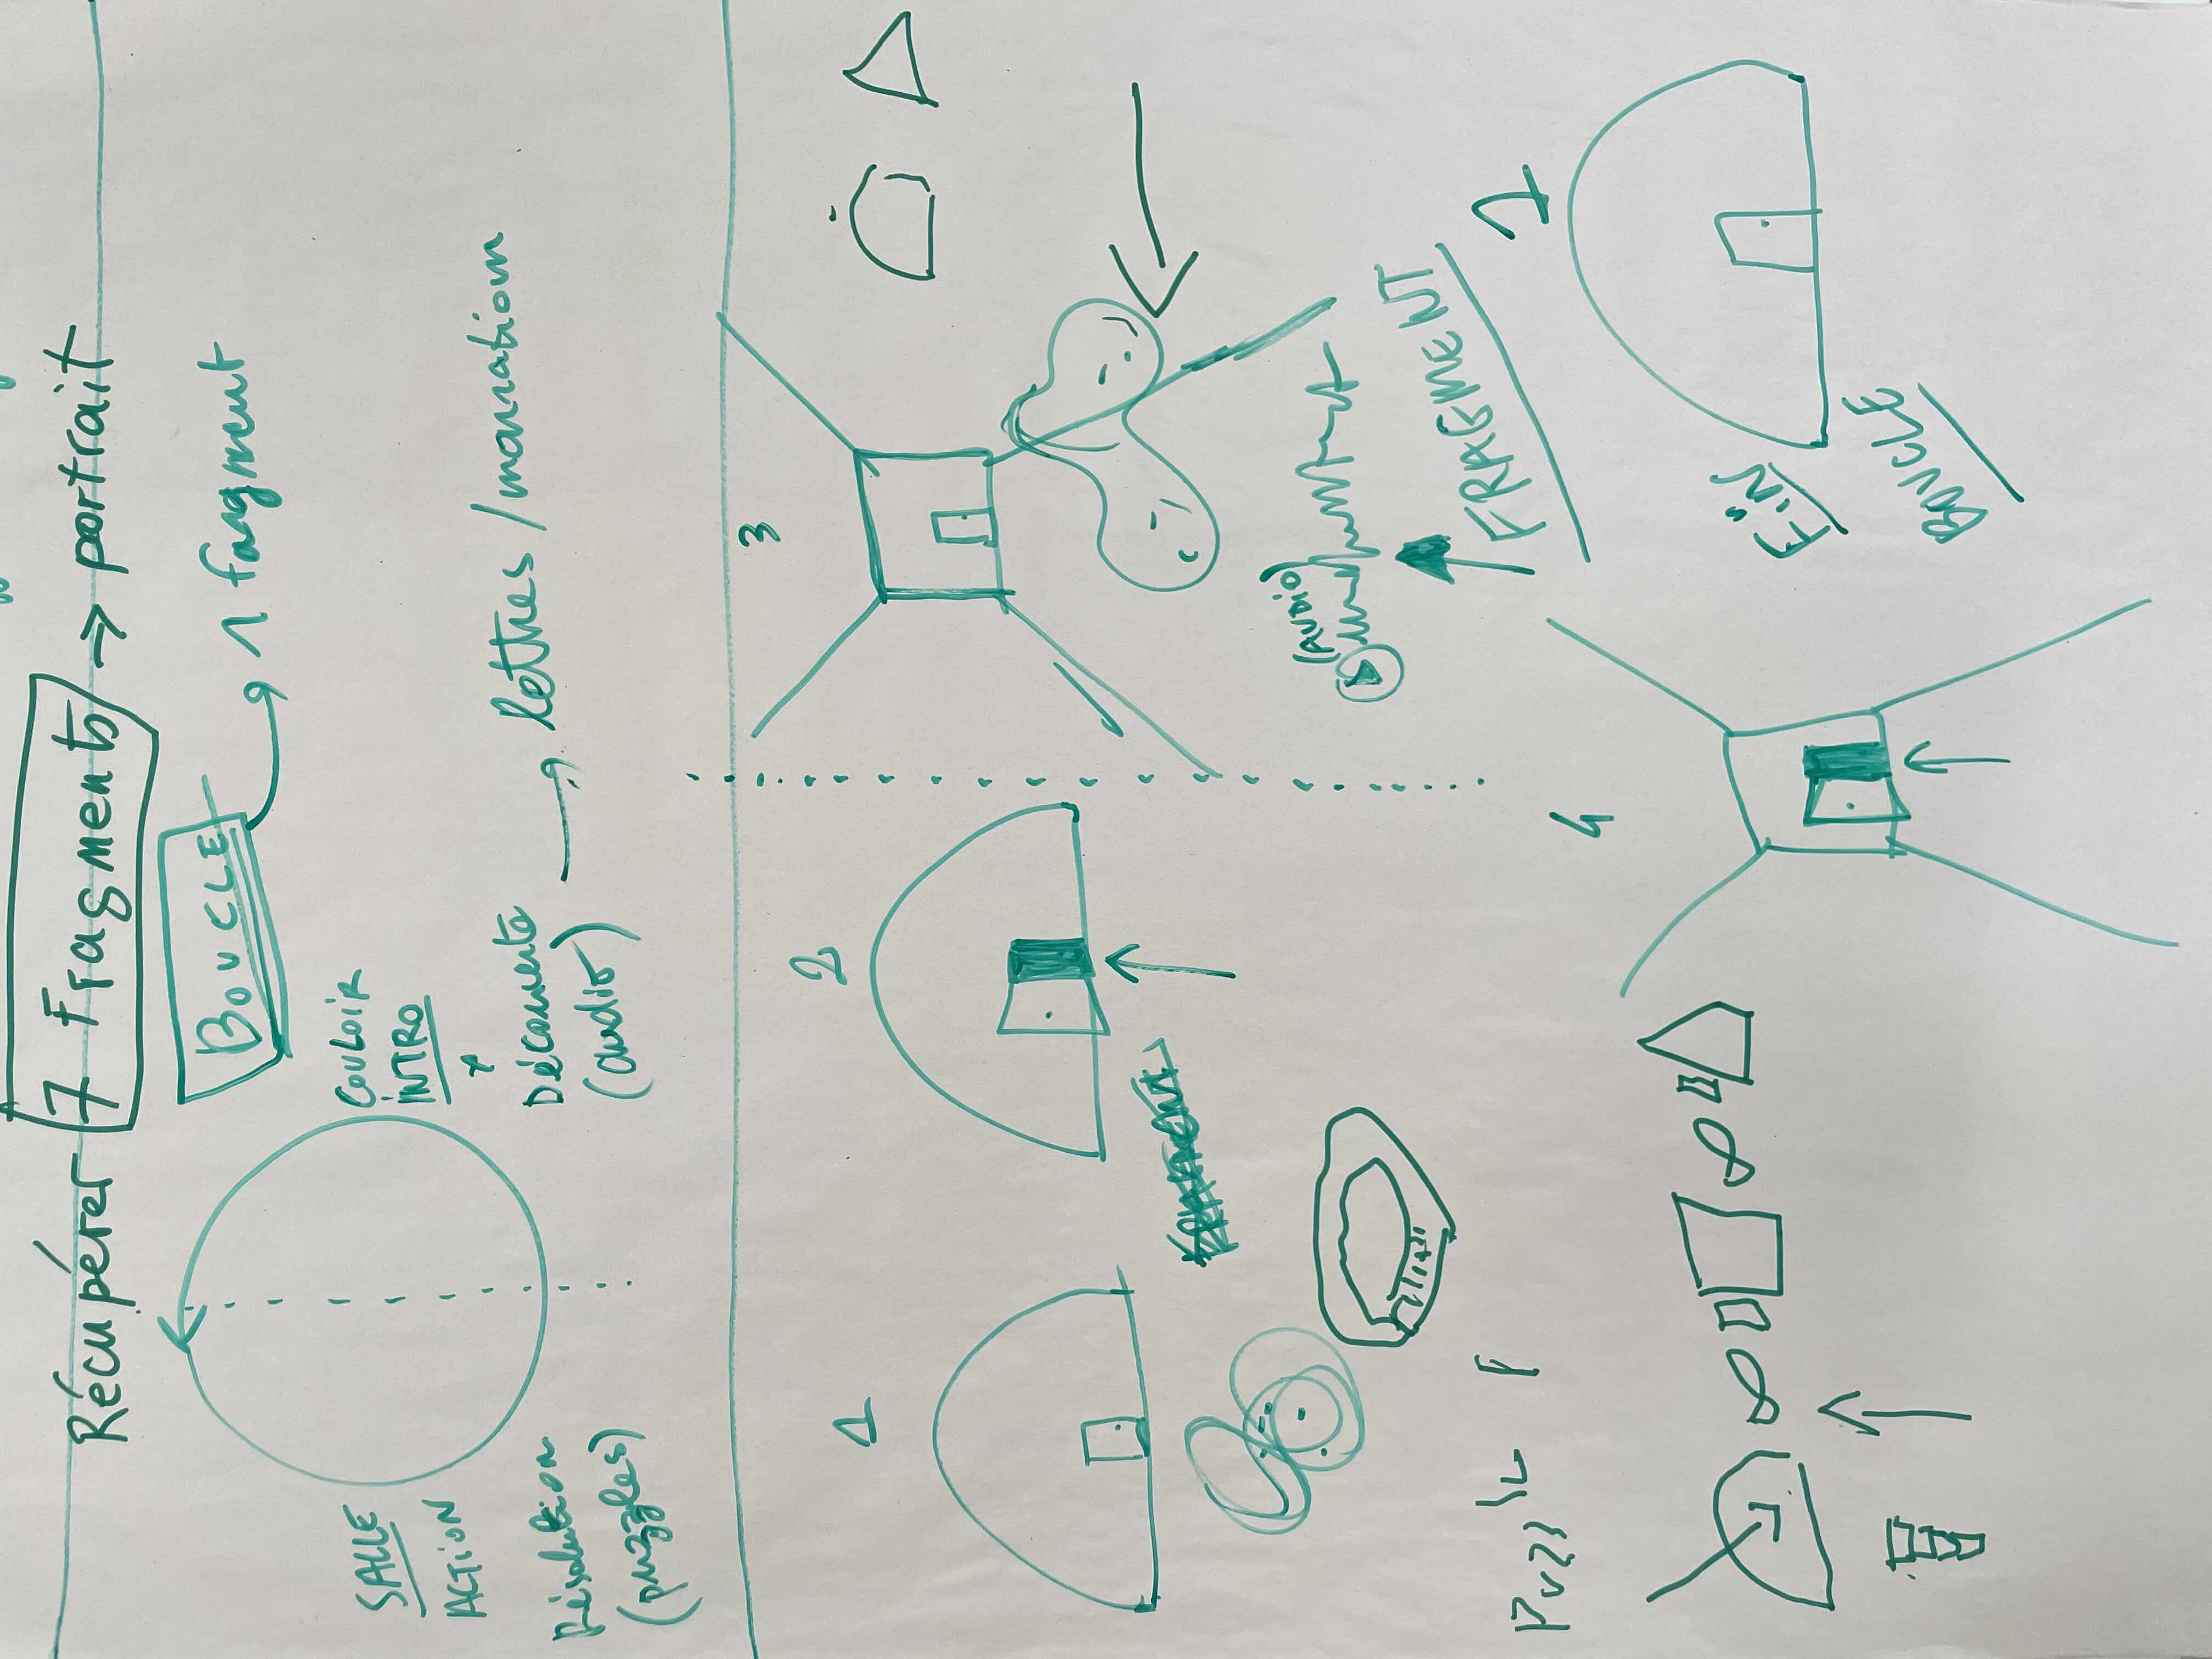 Récupérer 7 Fragments → portrait
BOUCLE
1 fargment
SALLE
ACTION
Résolution
(puzzles)
COULOIR
INTRO
+
Découverte
(audio) → lettres/narration
1
2
3
(AUDIO)
FRAGMENT
4
1
FIN
BOUCLE